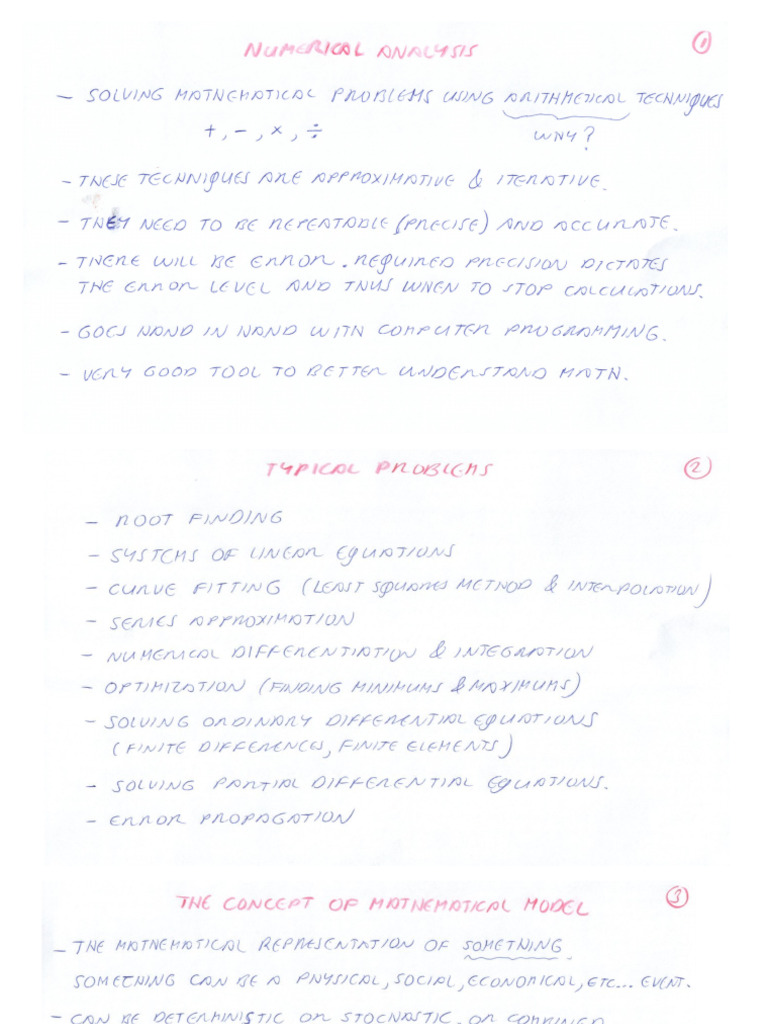 NUMERICAL ANALYSIS
1
- SOLVING MATHEMATICAL PROBLEMS USING ARITHMETICAL TECHNIQUES
+, -, ×, ÷ WHY?
- THESE TECHNIQUES ARE APPROXIMATIVE & ITERATIVE.
- THEY NEED TO BE REPEATABLE (PRECISE) AND ACCURATE.
- THERE WILL BE ERROR. REQUIRED PRECISION DICTATES
THE ERROR LEVEL AND THUS WHEN TO STOP CALCULATIONS.
- GOES HAND IN HAND WITH COMPUTER PROGRAMMING.
- VERY GOOD TOOL TO BETTER UNDERSTAND MATH.
TYPICAL PROBLEMS
2
- ROOT FINDING
- SYSTEMS OF LINEAR EQUATIONS
- CURVE FITTING (LEAST SQUARES METHOD & INTERPOLATION)
- SERIES APPROXIMATION
- NUMERICAL DIFFERENTIATION & INTEGRATION
- OPTIMIZATION (FINDING MINIMUMS & MAXIMUMS)
- SOLVING ORDINARY DIFFERENTIAL EQUATIONS
(FINITE DIFFERENCES, FINITE ELEMENTS)
- SOLVING PARTIAL DIFFERENTIAL EQUATIONS.
- ERROR PROPAGATION
THE CONCEPT OF MATHEMATICAL MODEL
3
- THE MATHEMATICAL REPRESENTATION OF SOMETHING.
SOMETHING CAN BE A PHYSICAL, SOCIAL, ECONOMICAL, ETC... EVENT.
- CAN BE DETERMINISTIC OR STOCHASTIC, OR COMBINED